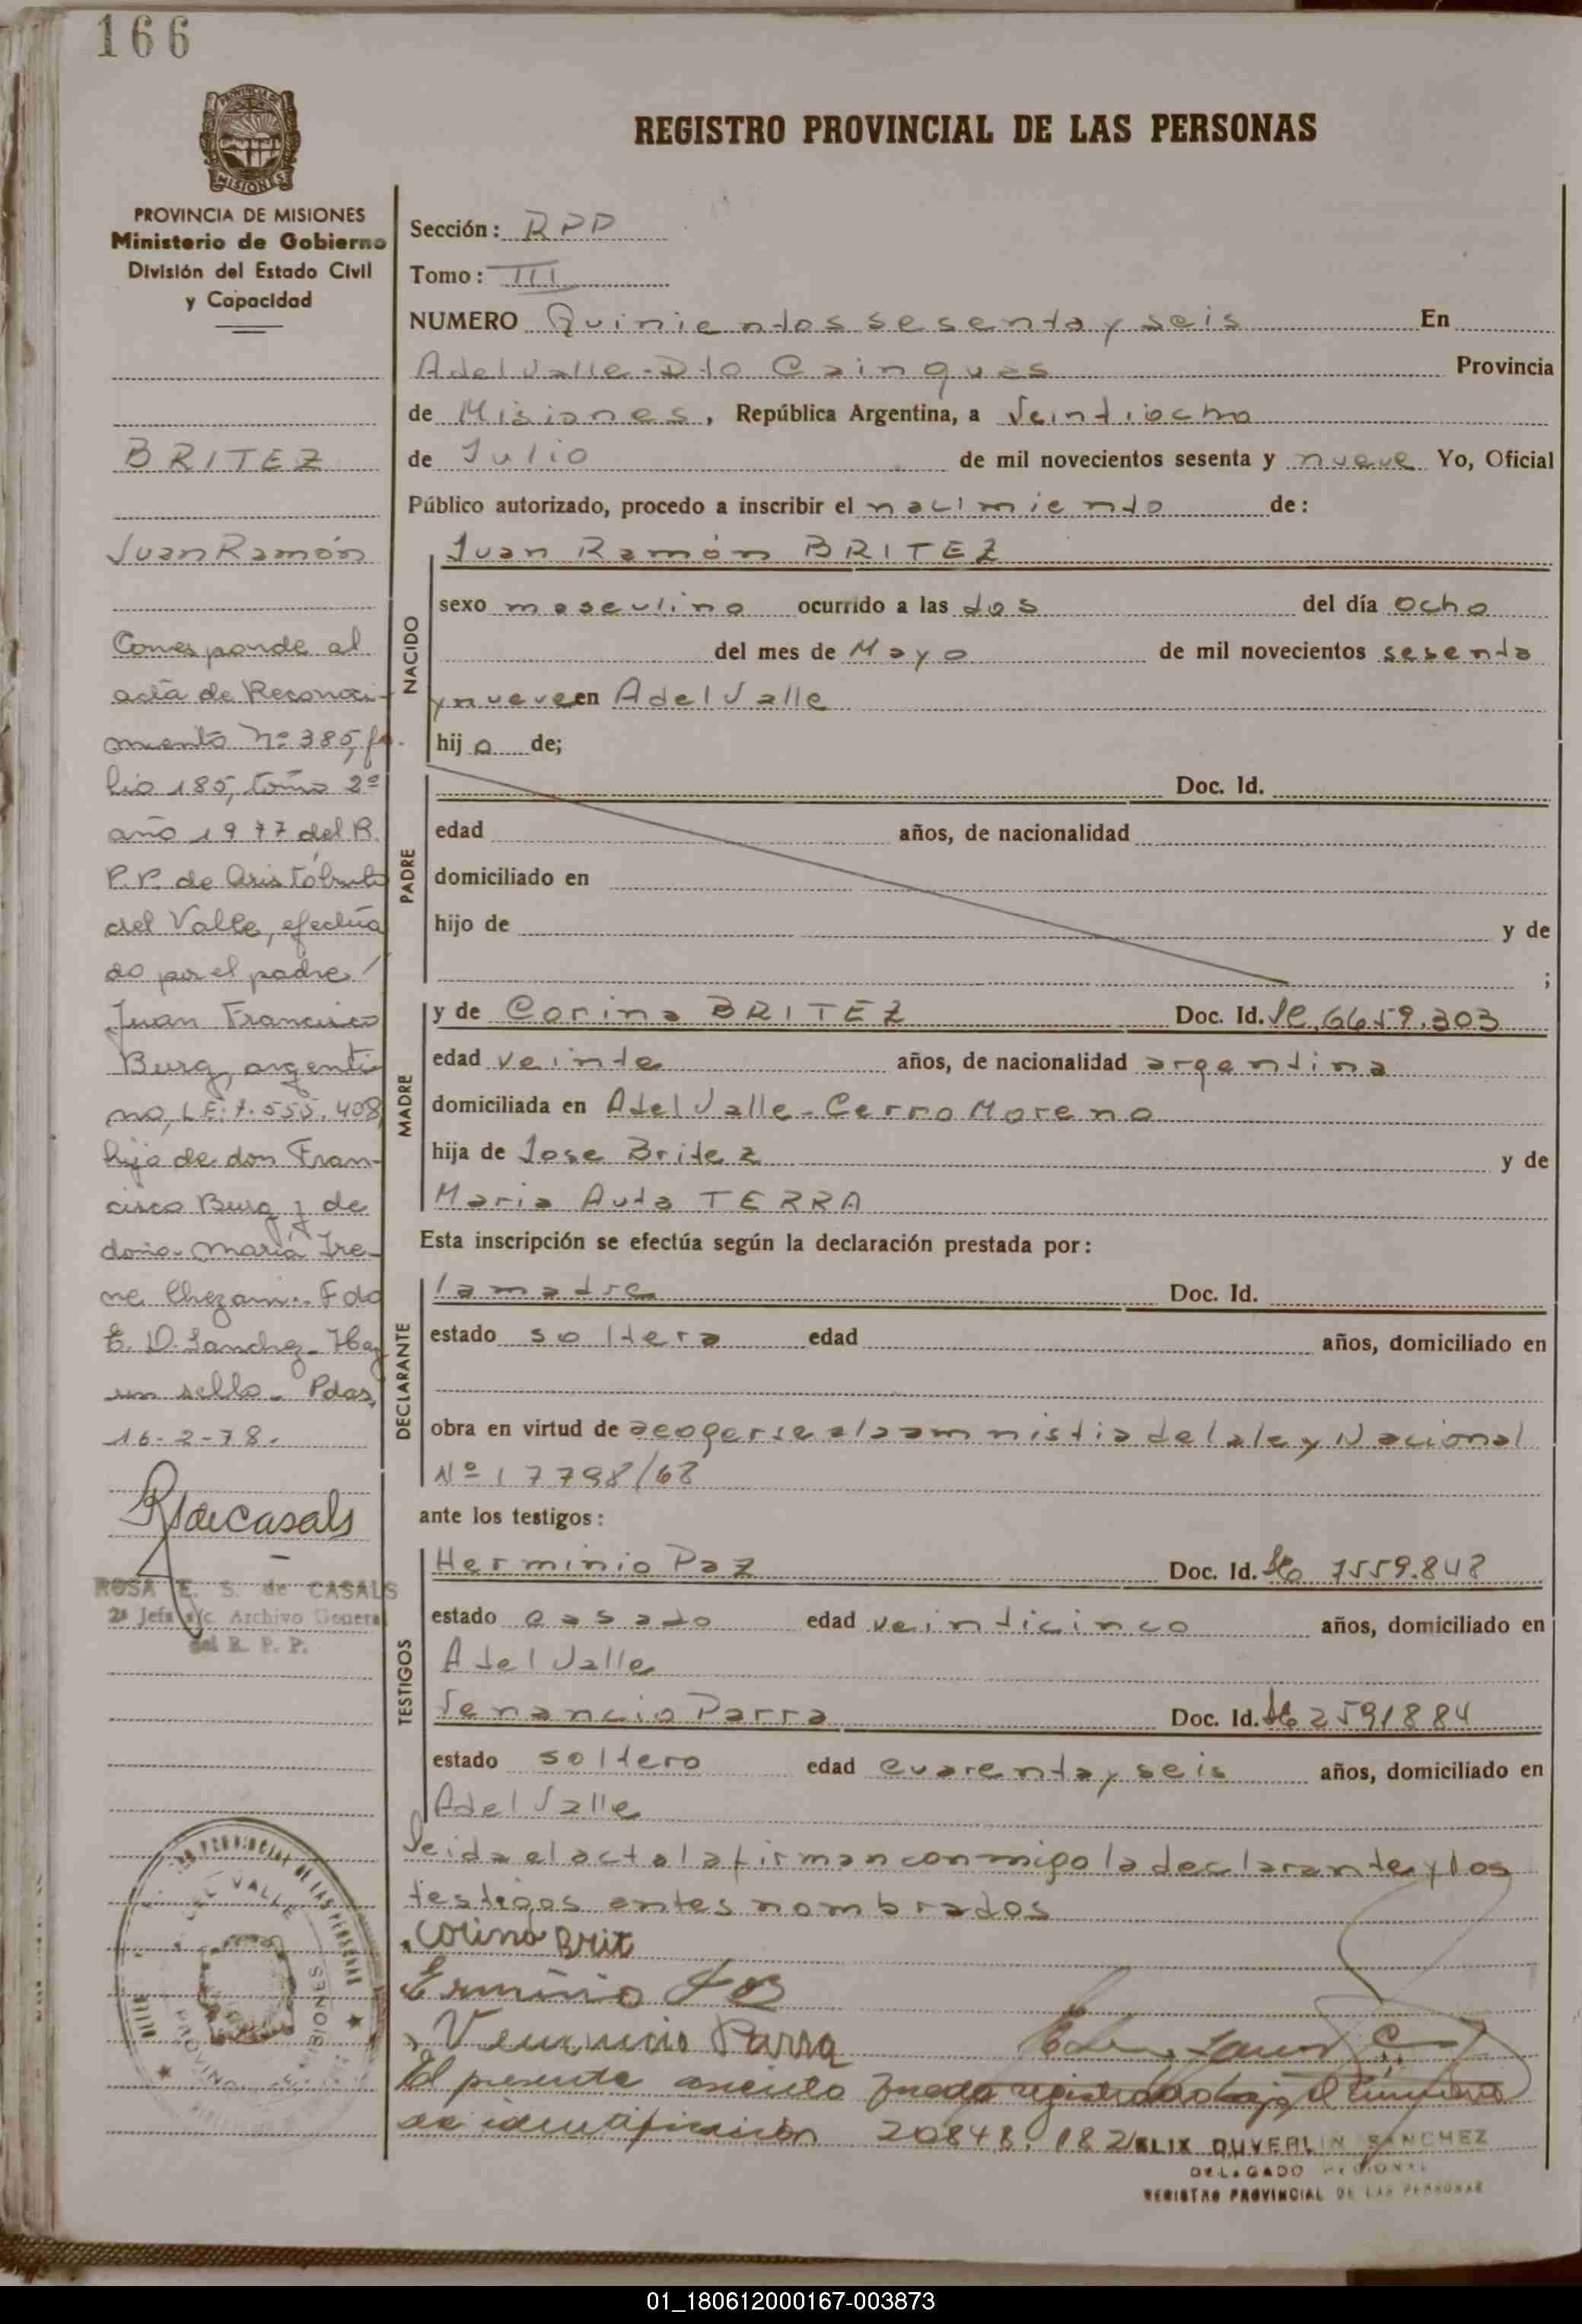 166
PROVINCIA DE MISIONES
Ministerio de Gobierno
División del Estado Civil
y Capacidad
REGISTRO PROVINCIAL DE LAS PERSONAS
Sección: RPP
Tomo: III
NUMERO Quinientos sesenta y seis En
A del Valle - Dto Cainguas Provincia
de Misiones, República Argentina, a Veintiocho
de Julio de mil novecientos sesenta y nueve Yo, Oficial
Público autorizado, procedo a inscribir el nacimiento de:
NACIDO
Juan Ramón BRITEZ
sexo masculino ocurrido a las dos del día ocho
del mes de Mayo de mil novecientos sesenta
y nueve en A del Valle
hijo de;
PADRE
Doc. Id.
edad años, de nacionalidad
domiciliado en
hijo de y de
;
MADRE
y de Corina BRITEZ Doc. Id. 6659.303
edad veinte años, de nacionalidad argentina
domiciliada en A del Valle - Cerro Moreno
hija de Jose Britez y de
Maria Auta TERRA
Esta inscripción se efectúa según la declaración prestada por:
DECLARANTE
la madre Doc. Id.
estado soltera edad años, domiciliado en
obra en virtud de acogerse a la amnistia de la ley Nacional
Nº 17798/68
ante los testigos:
TESTIGOS
Herminio Paz Doc. Id. 7559.848
estado casado edad veinticinco años, domiciliado en
A del Valle
Venancio Parra Doc. Id. 2591884
estado soltero edad cuarenta y seis años, domiciliado en
A del Valle
Leida el acta la firman conmigo la declarante y los
testigos antes nombrados
Corina Brit
Erminio
Venancio Parra
El presente asiento queda registrado bajo el número
de identificación 20848.182
FELIX DUVERLIN SANCHEZ
DELEGADO REGIONAL
REGISTRO PROVINCIAL DE LAS PERSONAS
BRITEZ
Juan Ramón
Corresponde al
acta de Reconoci-
miento Nº 385, fo-
lio 185, tomo 2º
año 1977 del R.
P.P. de Aristóbulo
del Valle, efectua
do por el padre
Juan Francisco
Burg, argenti
no, L.E: 7.555.408,
hijo de don Fran-
cisco Burg y de
doña María Ire-
ne Fdo
E. D. Sanchez - Hay
un sello - Pdas,
16-2-78.
R S de Casals
ROSA E. S. de CASALS
2ª Jefa a/c. Archivo General
del R. P. P.
REGISTRO PROVINCIAL DE LAS PERSONAS
DEL VALLE
PROVINCIA MISIONES
01_180612000167-003873